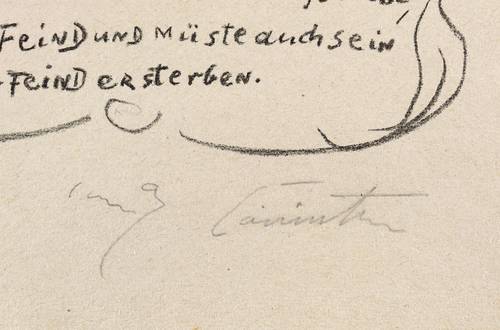 Feind und Müste auch sein
Feind ersterben.
Corinth